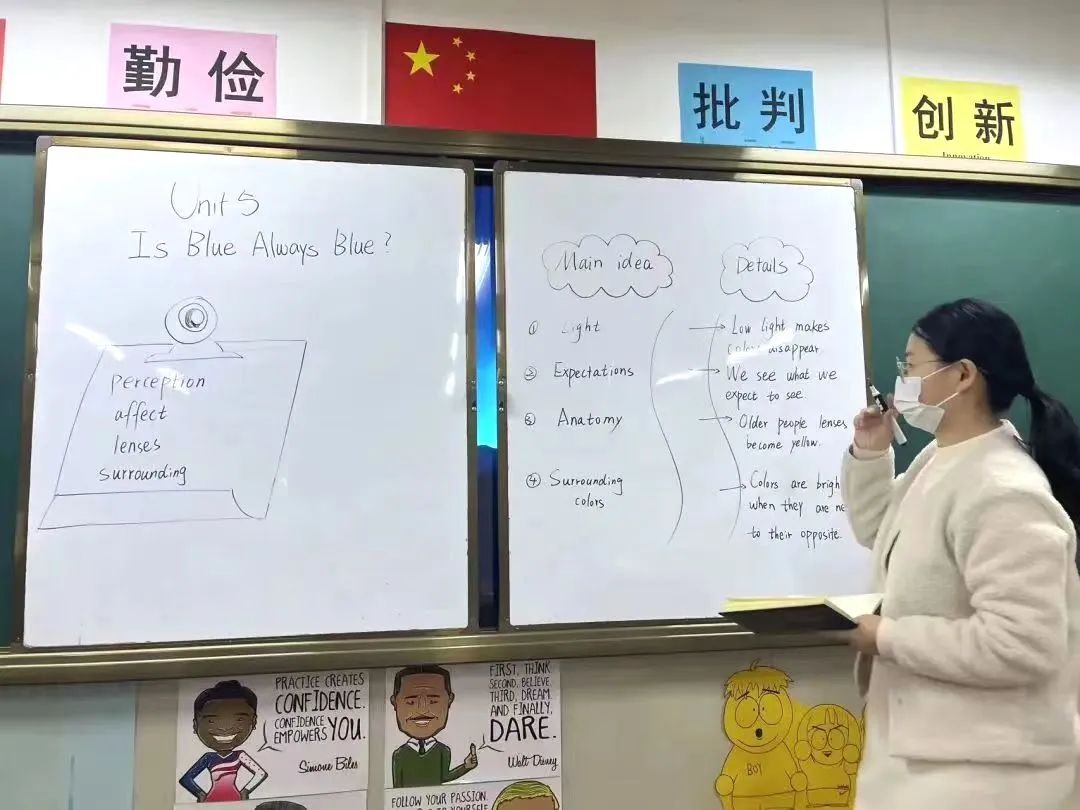 勤俭
批判
创新
Innovation
Unit 5
Is Blue Always Blue?
perception
affect
lenses
surrounding
Main idea
Details
① Light
Low light makes
colors disappear.
② Expectations
We see what we
expect to see.
③ Anatomy
Older people lenses
become yellow.
④ Surrounding
colors
Colors are
when they are
to their opposite.
PRACTICE CREATES
CONFIDENCE.
CONFIDENCE
EMPOWERS YOU.
Simone Biles
FIRST, THINK.
SECOND, BELIEVE.
THIRD, DREAM.
AND FINALLY,
DARE.
Walt Disney
FOLLOW YOUR PASSION.
BOY